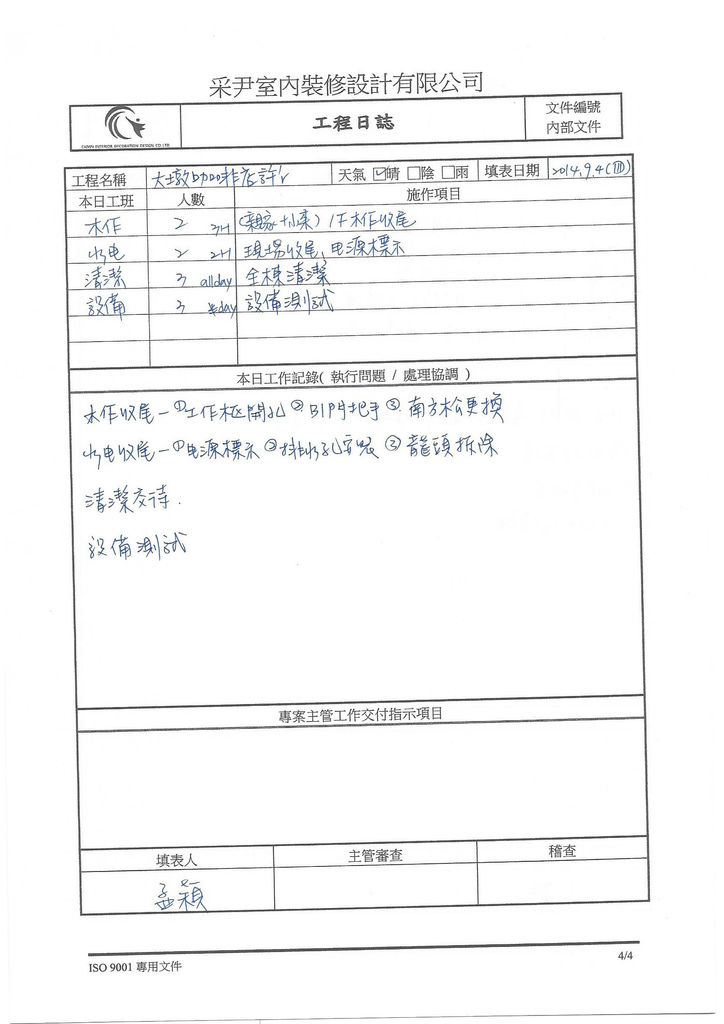 采尹室內裝修設計有限公司
CAIYIN INTERIOR DECORATION DESIGN CO.,LTD
工程日誌
文件編號
內部文件
工程名稱 大墩咖啡店
天氣 ☑晴 □陰 □雨
填表日期 2014.9.4(四)
本日工班 人數 施作項目
木作 2 3H 1F木作收尾
水电 2 2H 現場收尾,电源標示
清潔 3 allday 全棟清潔
設備 3 半day 設備測試
本日工作記錄( 執行問題 / 處理協調 )
木作收尾-①工作框開孔 ②B1門把手 ③南方松更換
水电收尾-①电源標示 ②排水孔安裝 ③龍頭拆除
清潔交待.
設備測試
專案主管工作交付指示項目
填表人 主管審查 稽查
孟穎
ISO 9001 專用文件
4/4